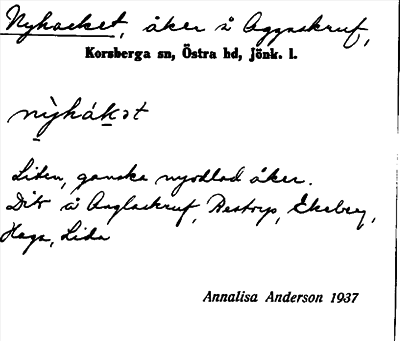 Nyhacket, åker å Aggaskruf,
Korsberga sn, Östra hd, Jönk. l.
nỳhák̲ət
Liten, ganska nyodlad åker.
Dito å Anglaskruf, Bestorp, Ekeberg,
Haga, Lida
Annalisa Anderson 1937